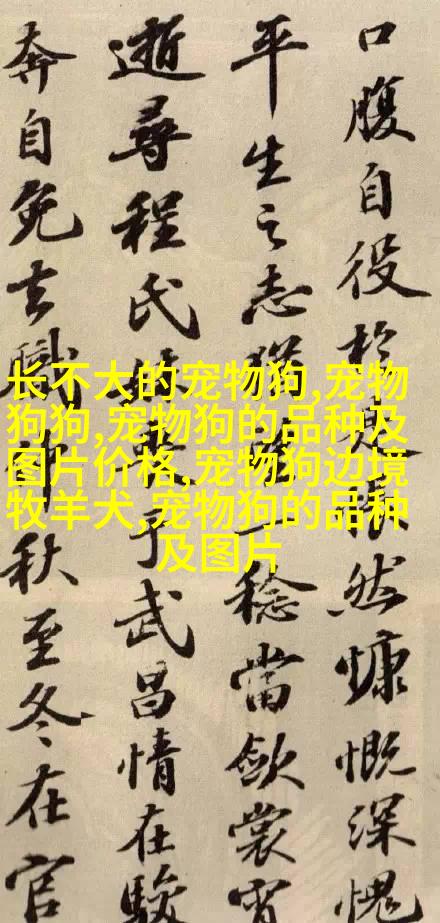 口腹自役於是悵然慷慨深愧
平生之志猶望一稔當斂裳宵
逝尋程氏妹喪于武昌情在駿
奔自免去職仲秋至冬在官
长不大的宠物狗,宠物
狗狗,宠物狗的品种及
图片价格,宠物狗边境
牧羊犬,宠物狗的品种
及图片